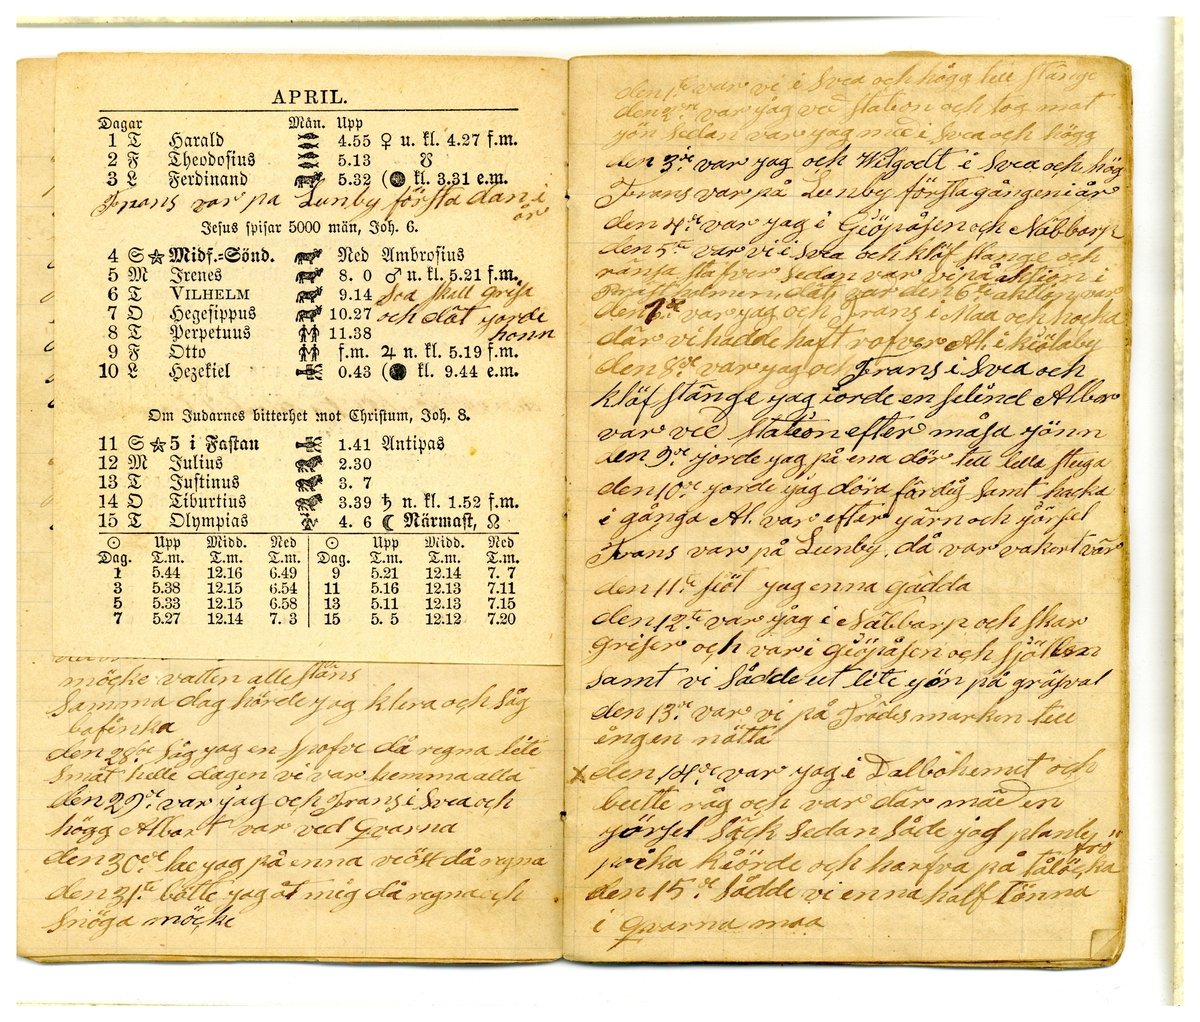 APRIL.
Dagar Mån. Upp
1 T Harald 4.55 ♀ u. kl. 4.27 f.m.
2 F Theodosius 5.13 ☋
3 L Ferdinand 5.32 kl. 3.31 e.m.
Frans var på Lunby första dan i
år
Jesus spisar 5000 män, Joh. 6.
4 S Midf.=Sönd. Ned Ambrosius
5 M Irenes 8. 0 ♂ u. kl. 5.21 f.m.
6 T VILHELM 9.14 Soa skall grisa
7 O Hegesippus 10.27 och dåt yorde
8 T Perpetuus 11.38 honn
9 F Otto f.m. ♃ n. kl. 5.19 f.m.
10 L Hezekiel 0.43 kl. 9.44 e.m.
Om Judarnes bitterhet mot Christum, Joh. 8.
11 S 5 i Fastan 1.41 Antipas
12 M Julius 2.30
13 T Justinus 3. 7
14 O Tiburtius 3.39 ♄ n. kl. 1.52 f.m.
15 T Olympias 4. 6 ☾ Närmast, ☊
☉ Upp Midd. Ned ☉ Upp Midd. Ned
Dag. T.m. T.m. T.m. Dag. T.m. T.m. T.m.
1 5.44 12.16 6.49 9 5.21 12.14 7. 7
3 5.38 12.15 6.54 11 5.16 12.13 7.11
5 5.33 12.15 6.58 13 5.11 12.13 7.15
7 5.27 12.14 7. 3 15 5. 5 12.12 7.20
möcke vatten alle stäns
Samma dag hörde yag klera och såg
bofinka
den 28de såg yag en spofve då regna lite
smat helle dagen vi var hemma alla
den 29de var yag och Frans i Svea och
högg Albart var ved Qvarna
den 30de yag på enna vöst då regna
den 31te bötte yag åt mig då regna och
snöga möcke
den 1te var vi i Svea och högg till stänge
den 2re var yag ved Station och tog mat
yön sedan var yag med i Svea och högg
den 3de var yag och Wilgodt i Svea och hög
Frans var på Lunby första gången i år
den 4de var yag i Giöpåsen och Näbbarp
den 5te var vi i Svea och klöf stange och
ränsa stafver sedan var vi på aktion i
Präst holmen dåt var den 6te aktion var
den 7de var yag och Frans i Maa och hacka
där vi hadde haft rofver Al. i kiölaby
den 8de var yag och Frans i Svea och
klöf stänge yag iorde en selind Albar
var ved Station efter måsa yönn
den 9de yorde yag på ena dör till lilla stuga
den 10de yorde yag döra färdig samt hacka
i gånga Al. var efter yärn och yörsel
Frans var på Lunby, då var vakert vär
den 11te siöt yag enna gädda
den 12te var yag i Näbbarp och skar
griser och var i giöpåsen och sjöllem
samt vi sådde ut lite yön på gräsval
den 13de var vi på Trädes marken till
ången nötta
x den 14de var yag i Dalbohemet och
butte råg och var där mäd en
yörsel säck sedan såde yag planty
frö
pricka kiörde och harfva på tålöcka
den 15de sådde vi enna half tönna
i Qvarna maa